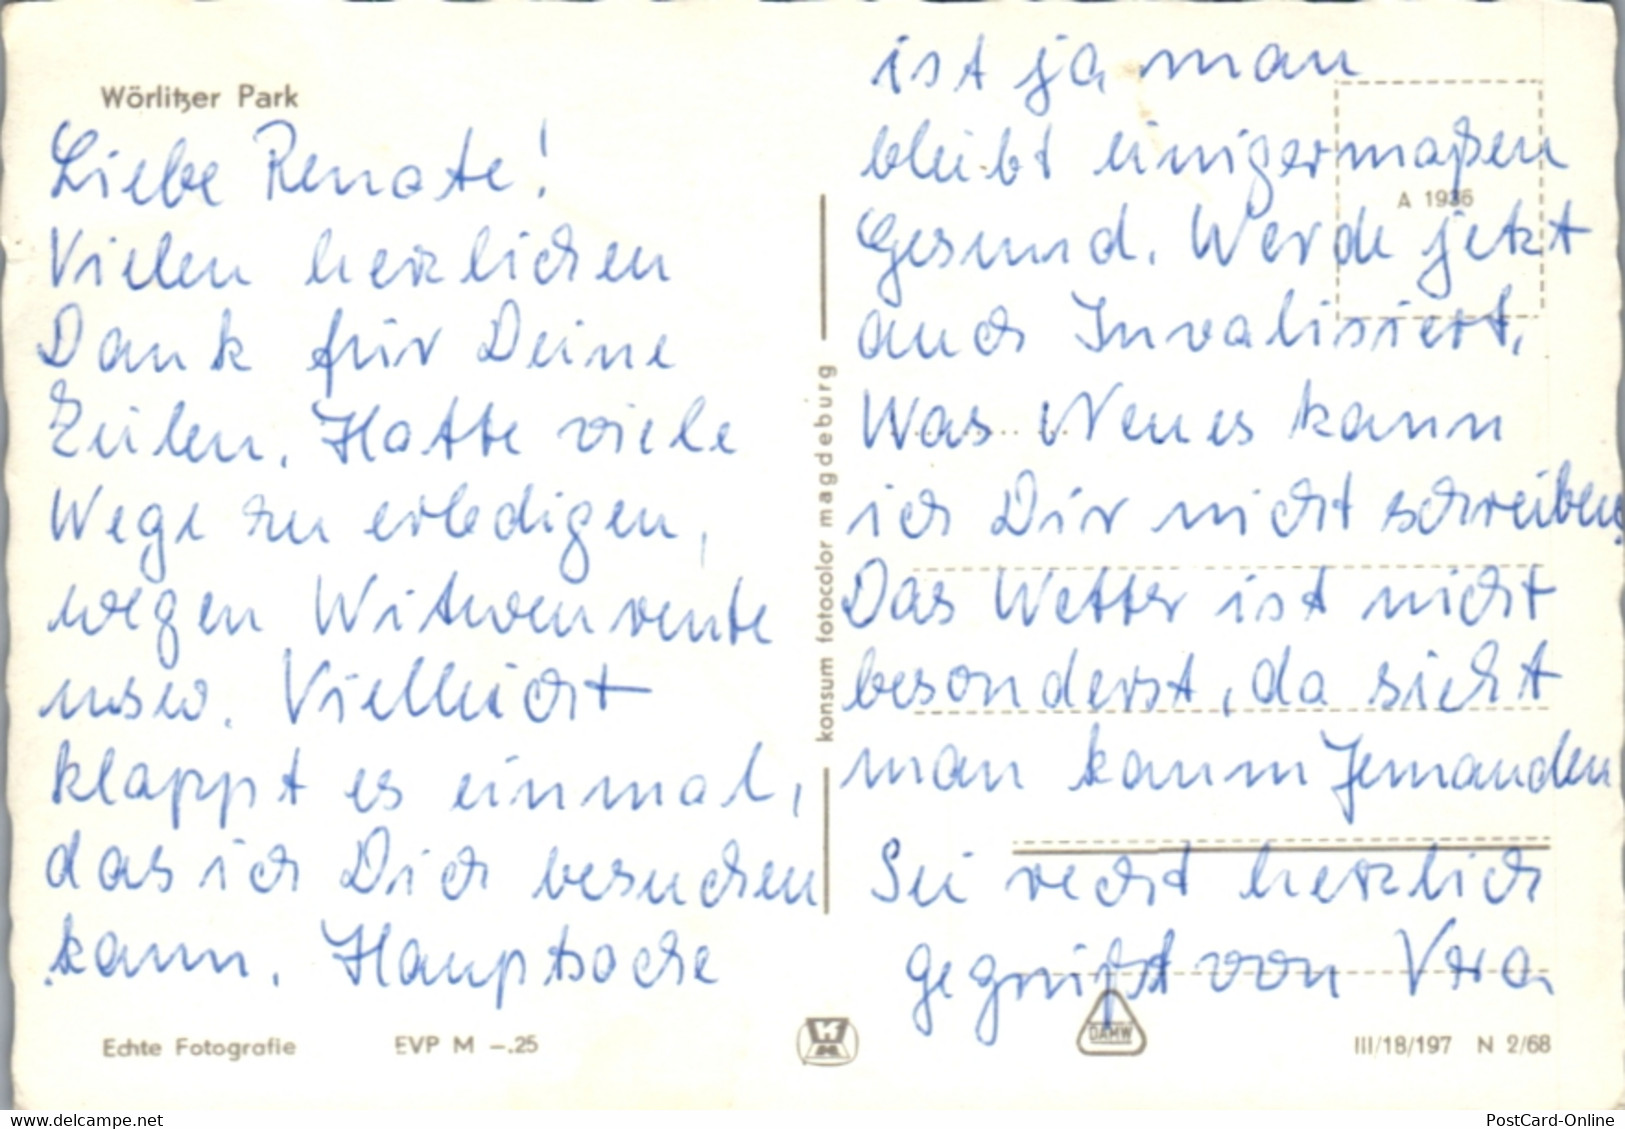 Wörlitzer Park
Liebe Renate!
Vielen herzlichen
Dank für Deine
Zeilen. Hatte viele
Wege zu erledigen,
wegen Witwenrente
usw. Vielleicht
klappt es einmal,
das ich Dich besuchen
kann. Hauptsache
Echte Fotografie EVP M –.25
konsum fotocolor magdeburg
ist ja man
bleibt einigermaßen
Gesund. Werde jetzt
A 1936
auch Invalisiert.
Was Neues kann
ich Dir nicht schreiben.
Das Wetter ist nicht
besonderst, da sieht
man kaum Jemanden
Sei recht herzlich
gegrüßt von Vera
DAMW
III/18/197 N 2/68
www.delcampe.net
PostCard-Online